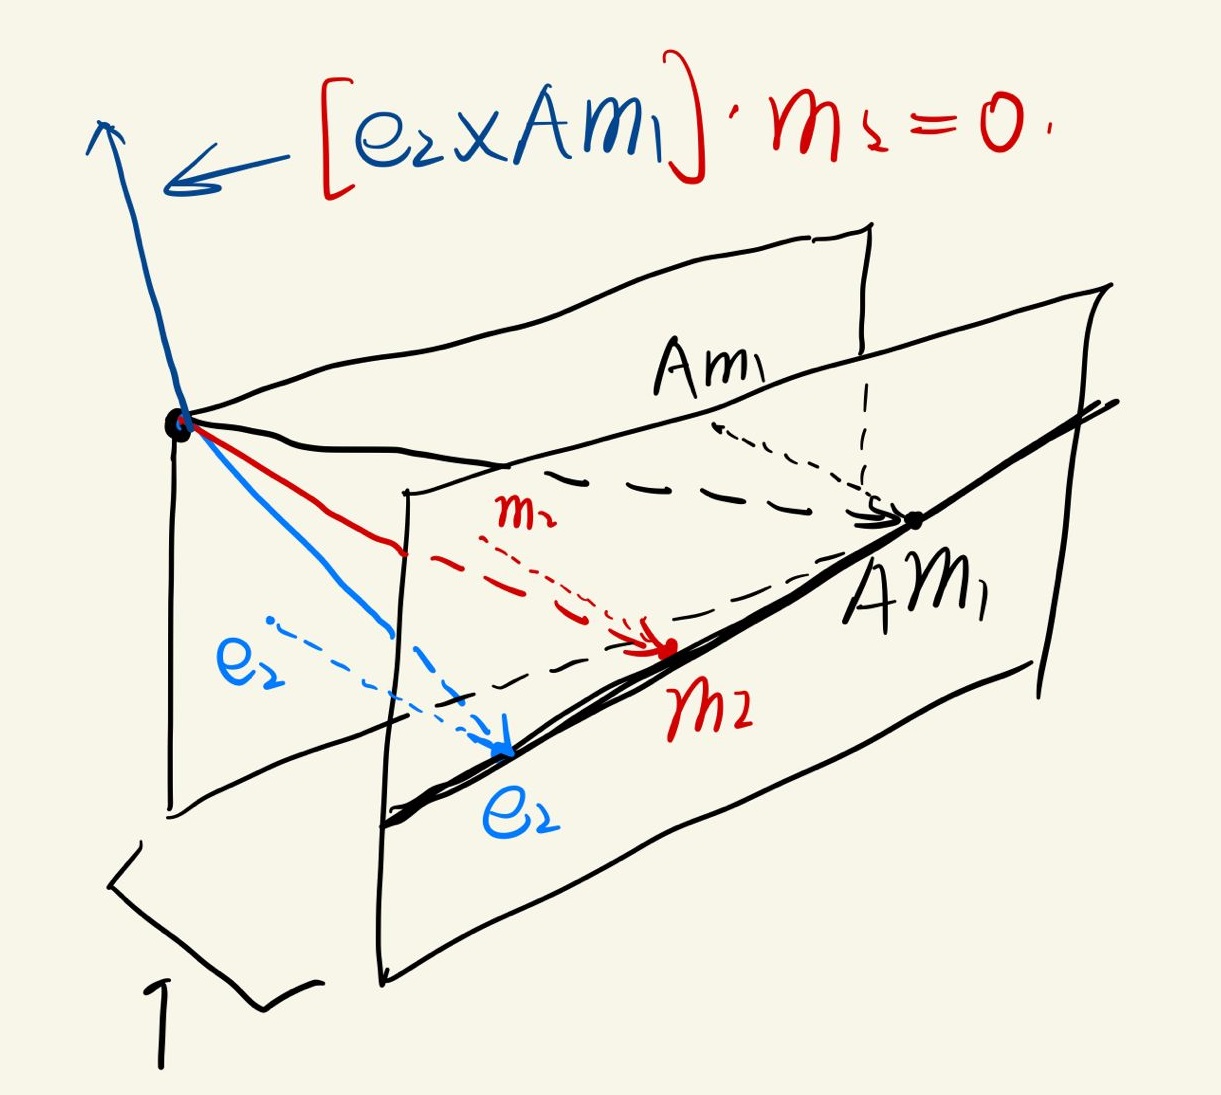 [e₂×Am₁]·m₂=0.
Am₁
m₂
Am₁
e₂
m₂
e₂
1